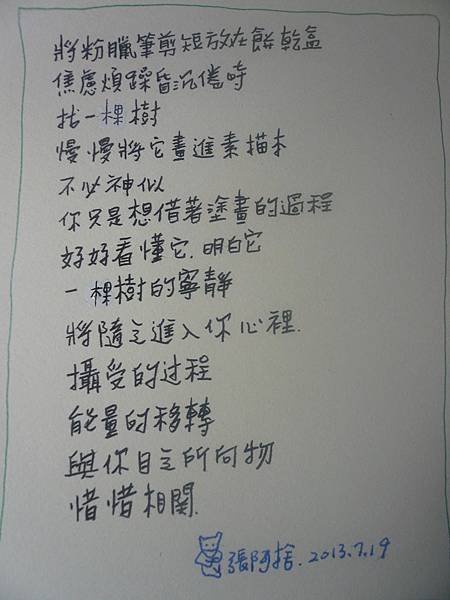 將粉臘筆剪短放在餅乾盒
焦慮煩躁昏沉倦時
找一棵樹
慢慢將它畫進素描本
不必神似
你只是想借著塗畫的過程
好好看懂它.明白它
一棵樹的寧靜
將隨之進入你心裡.
攝受的过程
能量的移轉
與你目之所向物
惜惜相關.
張阿捨.2013.7.19